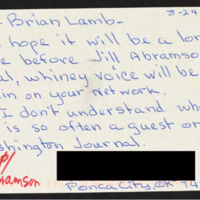 Brian Lamb-
3-24
hope it will be a lon
e before Jill Abramso
l, whiney voice will be
in on your Network.
I don't understand wh
is so often a guest on
shington Journal.
amson
Ponca City, OK 74